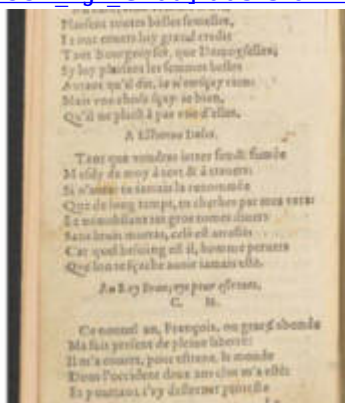 Plaisent toutes belles femelles,
Et ont envers luy grand credit
Tant Bourgeoyses, que Damoyselles;
Sy luy plaisent les femmes belles
Autant qu'il dit, je n'en sçay rien:
Mais une chose sçay-je bien,
Qu'il ne plaist à pas une d'elles.
A Estienne Dolet.
Tant que voudras jetter feu & fumée
Mesdy de moy à tort & à travers:
Si n'auras tu jamais la renommée
Que de long temps, tu cherches par mes vers:
Et nonobstant tes gros tomes divers
Sans bruit mourras, cela est arresté:
Car quel besoing est il, homme pervers
Que l'on te sçache avoir jamais esté.
Au Roy
pour estrenes,
C. M.
Ce nouvel an, François, ou grace abonde
M'a fait present de pleine liberté:
Il m'a ouvert, pour estrene, le monde
Dont l'occident deux ans clos m'a esté:
Et pourtant, j'ay